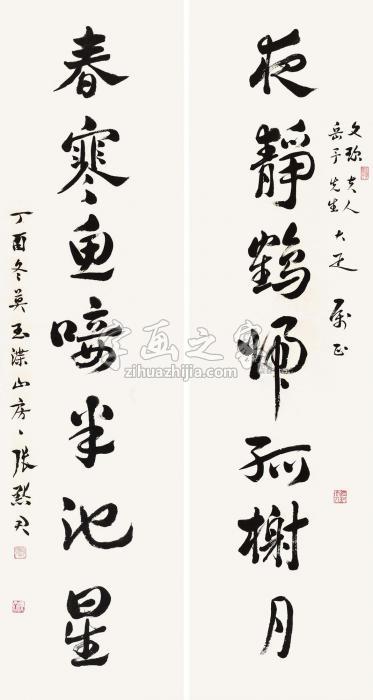 夫人
先生大疋 属正
夜靜鶴歸孤榭月
春寒魚唼半池星
丁酉冬莫玉渫山房、張默君
字画之家
zihuazhijia.com